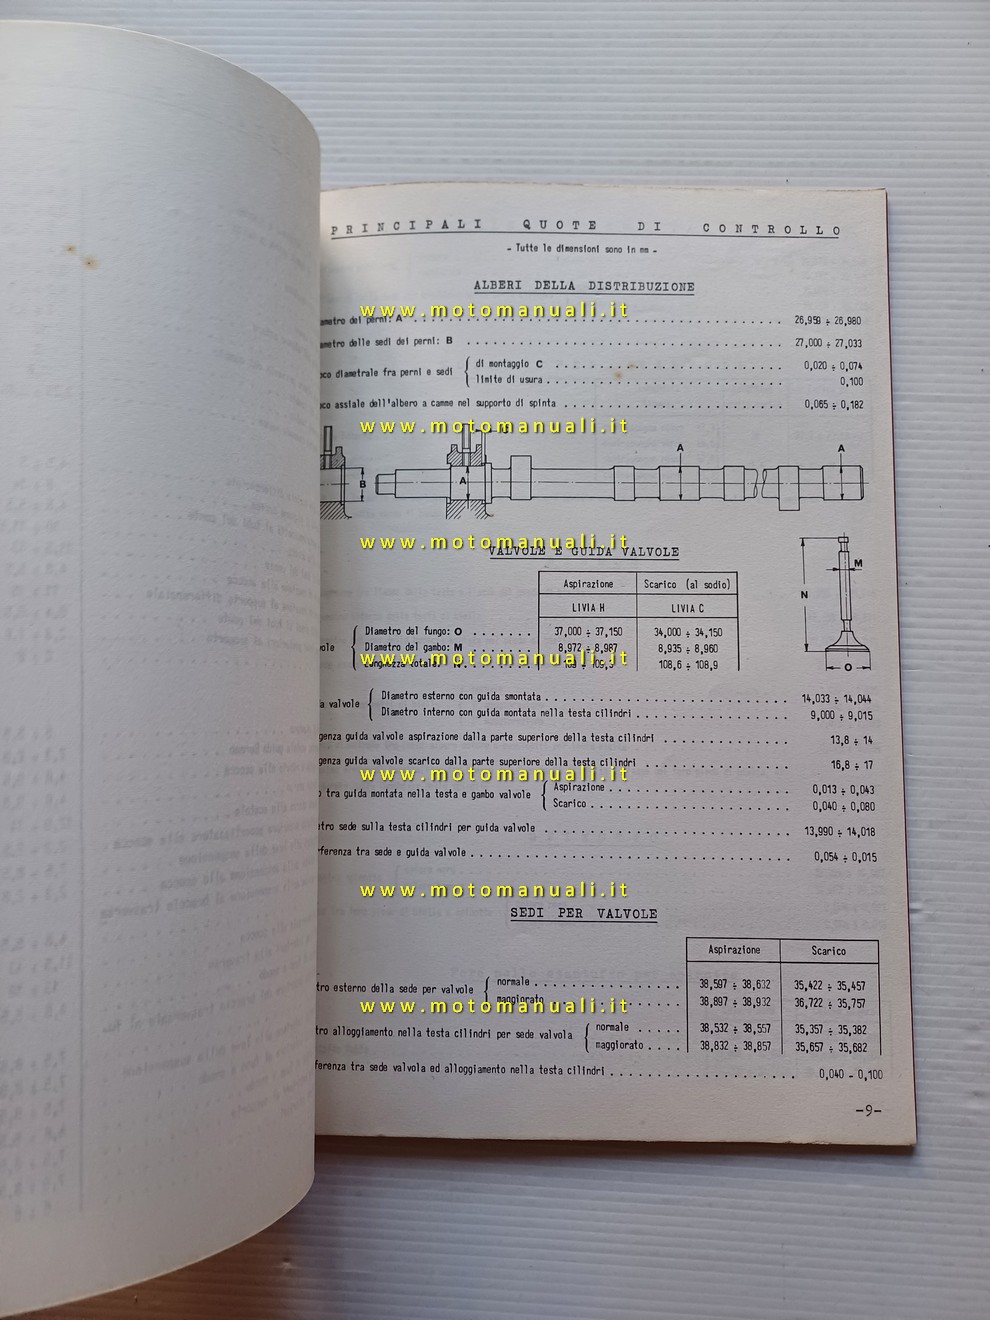 PRINCIPALI QUOTE DI CONTROLLO
- Tutte le dimensioni sono in mm -
ALBERI DELLA DISTRIBUZIONE
www.motomanuali.it
ametro dei perni: A 26,959 ÷ 26,980
ametro delle sedi dei perni: B 27,000 ÷ 27,033
oco diametrale fra perni e sedi di montaggio C 0,020 ÷ 0,074
limite di usura 0,100
oco assiale dell'albero a camme nel supporto di spinta 0,065 ÷ 0,182
www.motomanuali.it
B A A A
www.motomanuali.it
VALVOLE E GUIDA VALVOLE
Aspirazione Scarico (al sodio)
LIVIA H LIVIA C
M
N
O
Diametro del fungo: O 37,000 ÷ 37,150 34,000 ÷ 34,150
vole Diametro del gambo: M 8,972 ÷ 8,987 8,935 ÷ 8,960
N 108,6 ÷ 108,9
www.motomanuali.it
a valvole Diametro esterno con guida smontata 14,033 ÷ 14,044
Diametro interno con guida montata nella testa cilindri 9,000 ÷ 9,015
genza guida valvole aspirazione dalla parte superiore della testa cilindri 13,8 ÷ 14
genza guida valvole scarico dalla parte superiore della testa cilindri 16,8 ÷ 17
www.motomanuali.it
o tra guida montata nella testa e gambo valvole Aspirazione 0,013 ÷ 0,043
Scarico 0,040 ÷ 0,080
tro sede sulla testa cilindri per guida valvole 13,990 ÷ 14,018
rferenza tra sede e guida valvole 0,054 ÷ 0,015
www.motomanuali.it
SEDI PER VALVOLE
Aspirazione Scarico
tro esterno della sede per valvole normale 38,597 ÷ 38,632 35,422 ÷ 35,457
maggiorato 38,897 ÷ 38,932 36,722 ÷ 35,757
www.motomanuali.it
tro alloggiamento nella testa cilindri per sede valvola normale 38,532 ÷ 38,557 35,357 ÷ 35,382
maggiorato 38,832 ÷ 38,857 35,657 ÷ 35,682
ferenza tra sede valvola ed alloggiamento nella testa cilindri 0,040 - 0,100
-9-